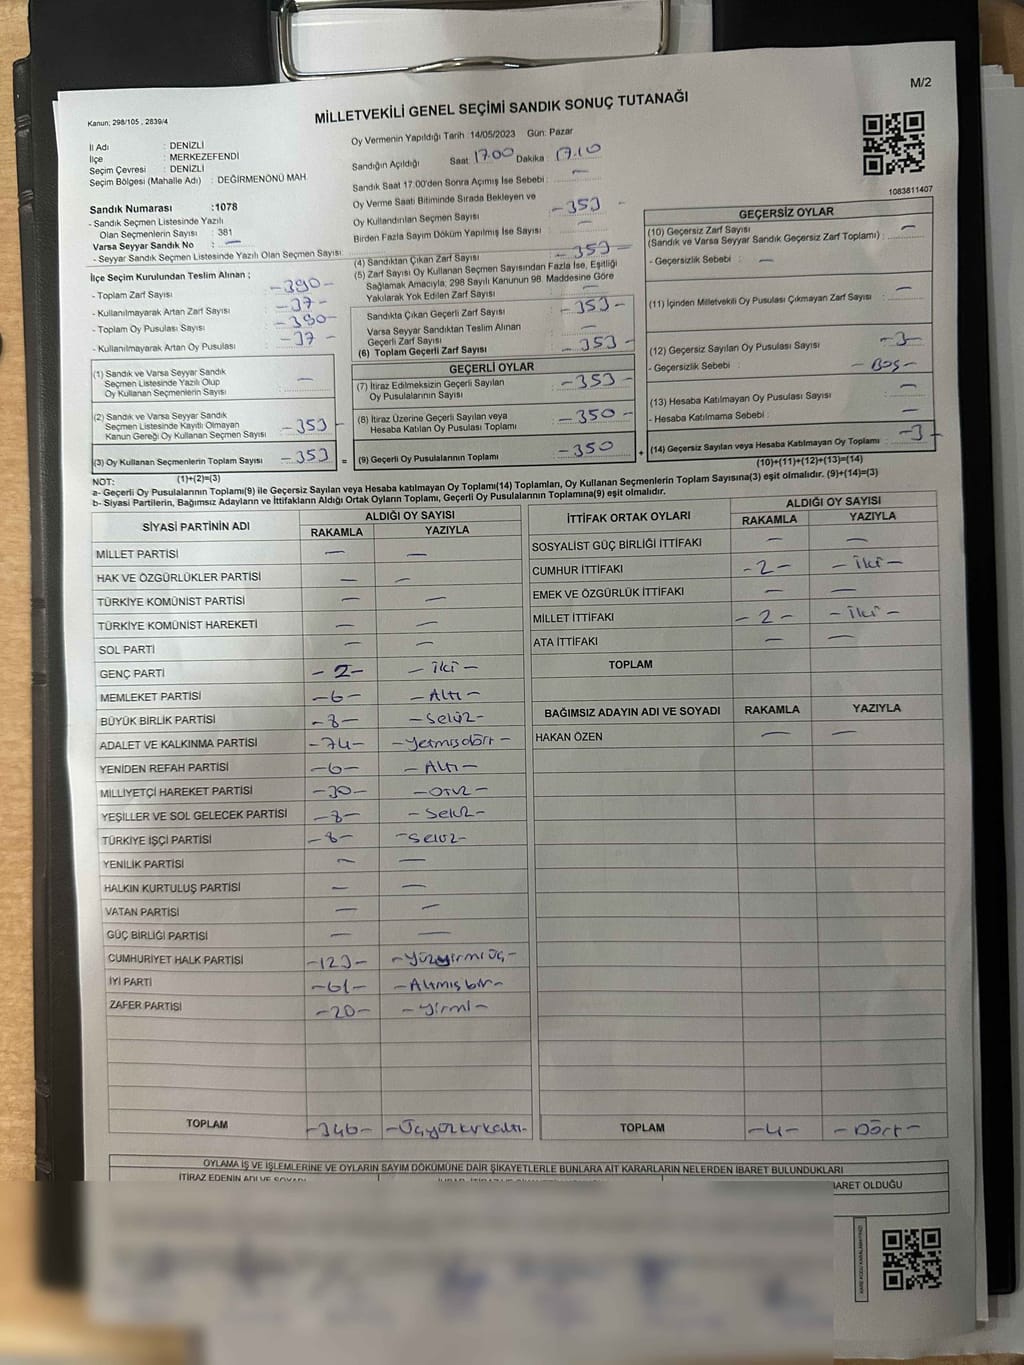 M/2
Kanun; 298/105 , 2839/4
MİLLETVEKİLİ GENEL SEÇİMİ SANDIK SONUÇ TUTANAĞI
İl Adı : DENİZLİ
İlçe : MERKEZEFENDİ
Seçim Çevresi : DENİZLİ
Seçim Bölgesi (Mahalle Adı) : DEĞİRMENÖNÜ MAH.
Oy Vermenin Yapıldığı Tarih :14/05/2023 Gün: Pazar
Sandığın Açıldığı Saat 17.00 Dakika : 17.10
Sandık Saat 17.00'den Sonra Açımış İse Sebebi : —
Oy Verme Saati Bitiminde Sırada Bekleyen ve
Oy Kullandırılan Seçmen Sayısı : -353-
Birden Fazla Sayım Döküm Yapılmış İse Sayısı : —
1083811407
Sandık Numarası :1078
- Sandık Seçmen Listesinde Yazılı
Olan Seçmenlerin Sayısı : 381
Varsa Seyyar Sandık No : —
- Seyyar Sandık Seçmen Listesinde Yazılı Olan Seçmen Sayısı:
İlçe Seçim Kurulundan Teslim Alınan ;
- Toplam Zarf Sayısı : -390-
- Kullanılmayarak Artan Zarf Sayısı : -37-
- Toplam Oy Pusulası Sayısı : -390-
- Kullanılmayarak Artan Oy Pusulası : -37-
(1) Sandık ve Varsa Seyyar Sandık
Seçmen Listesinde Yazılı Olup
Oy Kullanan Seçmenlerin Sayısı : —
(2) Sandık ve Varsa Seyyar Sandık
Seçmen Listesinde Kayıtlı Olmayan
Kanun Gereği Oy Kullanan Seçmen Sayısı : -353-
(3) Oy Kullanan Seçmenlerin Toplam Sayısı : -353-
(1)+(2)=(3)
(4) Sandıktan Çıkan Zarf Sayısı : -353-
(5) Zarf Sayısı Oy Kullanan Seçmen Sayısından Fazla İse, Eşitliği
Sağlamak Amacıyla, 298 Sayılı Kanunun 98. Maddesine Göre
Yakılarak Yok Edilen Zarf Sayısı : —
Sandıkta Çıkan Geçerli Zarf Sayısı : -353-
Varsa Seyyar Sandıktan Teslim Alınan
Geçerli Zarf Sayısı : —
(6) Toplam Geçerli Zarf Sayısı : -353-
GEÇERLİ OYLAR
(7) İtiraz Edilmeksizin Geçerli Sayılan
Oy Pusulalarının Sayısı : -353-
(8) İtiraz Üzerine Geçerli Sayılan veya
Hesaba Katılan Oy Pusulası Toplamı : -350-
= (9) Geçerli Oy Pusulalarının Toplamı : -350 +
GEÇERSİZ OYLAR
(10) Geçersiz Zarf Sayısı
(Sandık ve Varsa Seyyar Sandık Geçersiz Zarf Toplamı) : —
- Geçersizlik Sebebi : —
(11) İçinden Milletvekili Oy Pusulası Çıkmayan Zarf Sayısı : —
(12) Geçersiz Sayılan Oy Pusulası Sayısı : -3-
- Geçersizlik Sebebi : -Boş-
(13) Hesaba Katılmayan Oy Pusulası Sayısı : —
- Hesaba Katılmama Sebebi : —
(14) Geçersiz Sayılan veya Hesaba Katılmayan Oy Toplamı : -3-
(10)+(11)+(12)+(13)=(14)
NOT:
a- Geçerli Oy Pusulalarının Toplamı(9) ile Geçersiz Sayılan veya Hesaba katılmayan Oy Toplamı(14) Toplamları, Oy Kullanan Seçmenlerin Toplam Sayısına(3) eşit olmalıdır. (9)+(14)=(3)
b- Siyasi Partilerin, Bağımsız Adayların ve İttifakların Aldığı Ortak Oyların Toplamı, Geçerli Oy Pusulalarının Toplamına(9) eşit olmalıdır.
SİYASİ PARTİNİN ADI ALDIĞI OY SAYISI
RAKAMLA YAZIYLA
MİLLET PARTİSİ — —
HAK VE ÖZGÜRLÜKLER PARTİSİ — —
TÜRKİYE KOMÜNİST PARTİSİ — —
TÜRKİYE KOMÜNİST HAREKETİ — —
SOL PARTİ — —
GENÇ PARTİ -2- -İki-
MEMLEKET PARTİSİ -6- -Altı-
BÜYÜK BİRLİK PARTİSİ -8- -Sekiz-
ADALET VE KALKINMA PARTİSİ -74- -Yetmişdört-
YENİDEN REFAH PARTİSİ -6- -Altı-
MİLLİYETÇİ HAREKET PARTİSİ -30- -Otuz-
YEŞİLLER VE SOL GELECEK PARTİSİ -8- -Sekiz-
TÜRKİYE İŞÇİ PARTİSİ -8- -Sekiz-
YENİLİK PARTİSİ — —
HALKIN KURTULUŞ PARTİSİ — —
VATAN PARTİSİ — —
GÜÇ BİRLİĞİ PARTİSİ — —
CUMHURİYET HALK PARTİSİ -123- -Yüzyirmiüç-
İYİ PARTİ -61- -Altmışbir-
ZAFER PARTİSİ -20- -Yirmi-
TOPLAM -346- -Üçyüzkırkaltı-
İTTİFAK ORTAK OYLARI ALDIĞI OY SAYISI
RAKAMLA YAZIYLA
SOSYALİST GÜÇ BİRLİĞİ İTTİFAKI — —
CUMHUR İTTİFAKI -2- -İki-
EMEK VE ÖZGÜRLÜK İTTİFAKI — —
MİLLET İTTİFAKI -2- -İki-
ATA İTTİFAKI — —
TOPLAM
BAĞIMSIZ ADAYIN ADI VE SOYADI RAKAMLA YAZIYLA
HAKAN ÖZEN — —
TOPLAM -4- -Dört-
OYLAMA İŞ VE İŞLEMLERİNE VE OYLARIN SAYIM DÖKÜMÜNE DAİR ŞİKAYETLERLE BUNLARA AİT KARARLARIN NELERDEN İBARET BULUNDUKLARI
İTİRAZ EDENİN ADI VE SOYADI
İBARET OLDUĞU